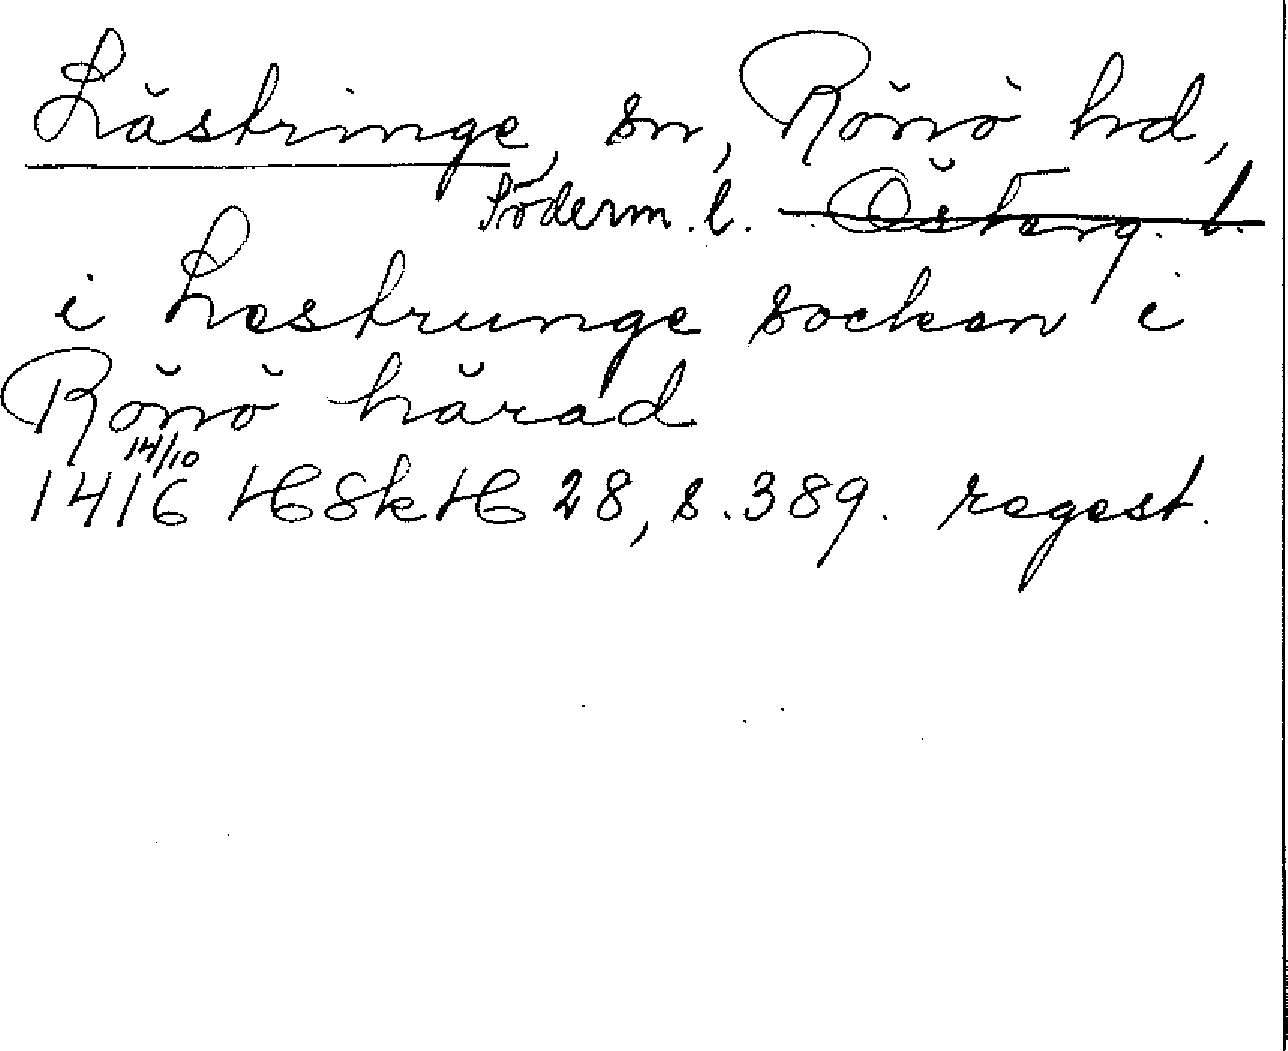 Lästringe, sn, Rönö hd,
Söderm. l. Österg. l.
i Lestrunge socken i
Rönö härad
14/10
1416 HSkH 28, s. 389. regest.